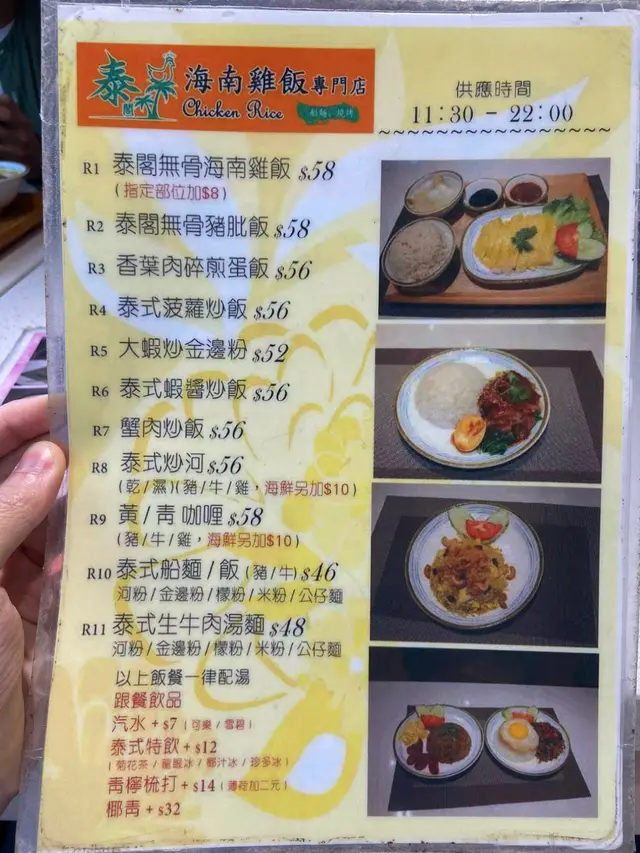 泰閣
海南雞飯專門店
Chicken Rice
船麵、燒烤
供應時間
11:30 - 22:00
R1 泰閣無骨海南雞飯 $58
(指定部位加$8)
R2 泰閣無骨豬肶飯 $58
R3 香葉肉碎煎蛋飯 $56
R4 泰式菠蘿炒飯 $56
R5 大蝦炒金邊粉 $52
R6 泰式蝦醬炒飯 $56
R7 蟹肉炒飯 $56
R8 泰式炒河 $56
(乾/濕)(豬/牛/雞，海鮮另加$10)
R9 黃/青咖喱 $58
(豬/牛/雞，海鮮另加$10)
R10 泰式船麵/飯(豬/牛) $46
河粉/金邊粉/檬粉/米粉/公仔麵
R11 泰式生牛肉湯麵 $48
河粉/金邊粉/檬粉/米粉/公仔麵
以上飯餐一律配湯
跟餐飲品
汽水 + $7 (可樂/雪碧)
泰式特飲 + $12
(菊花茶/龍眼冰/椰汁冰/珍多冰)
青檸梳打 + $14 (薄荷加二元)
椰青 + $32